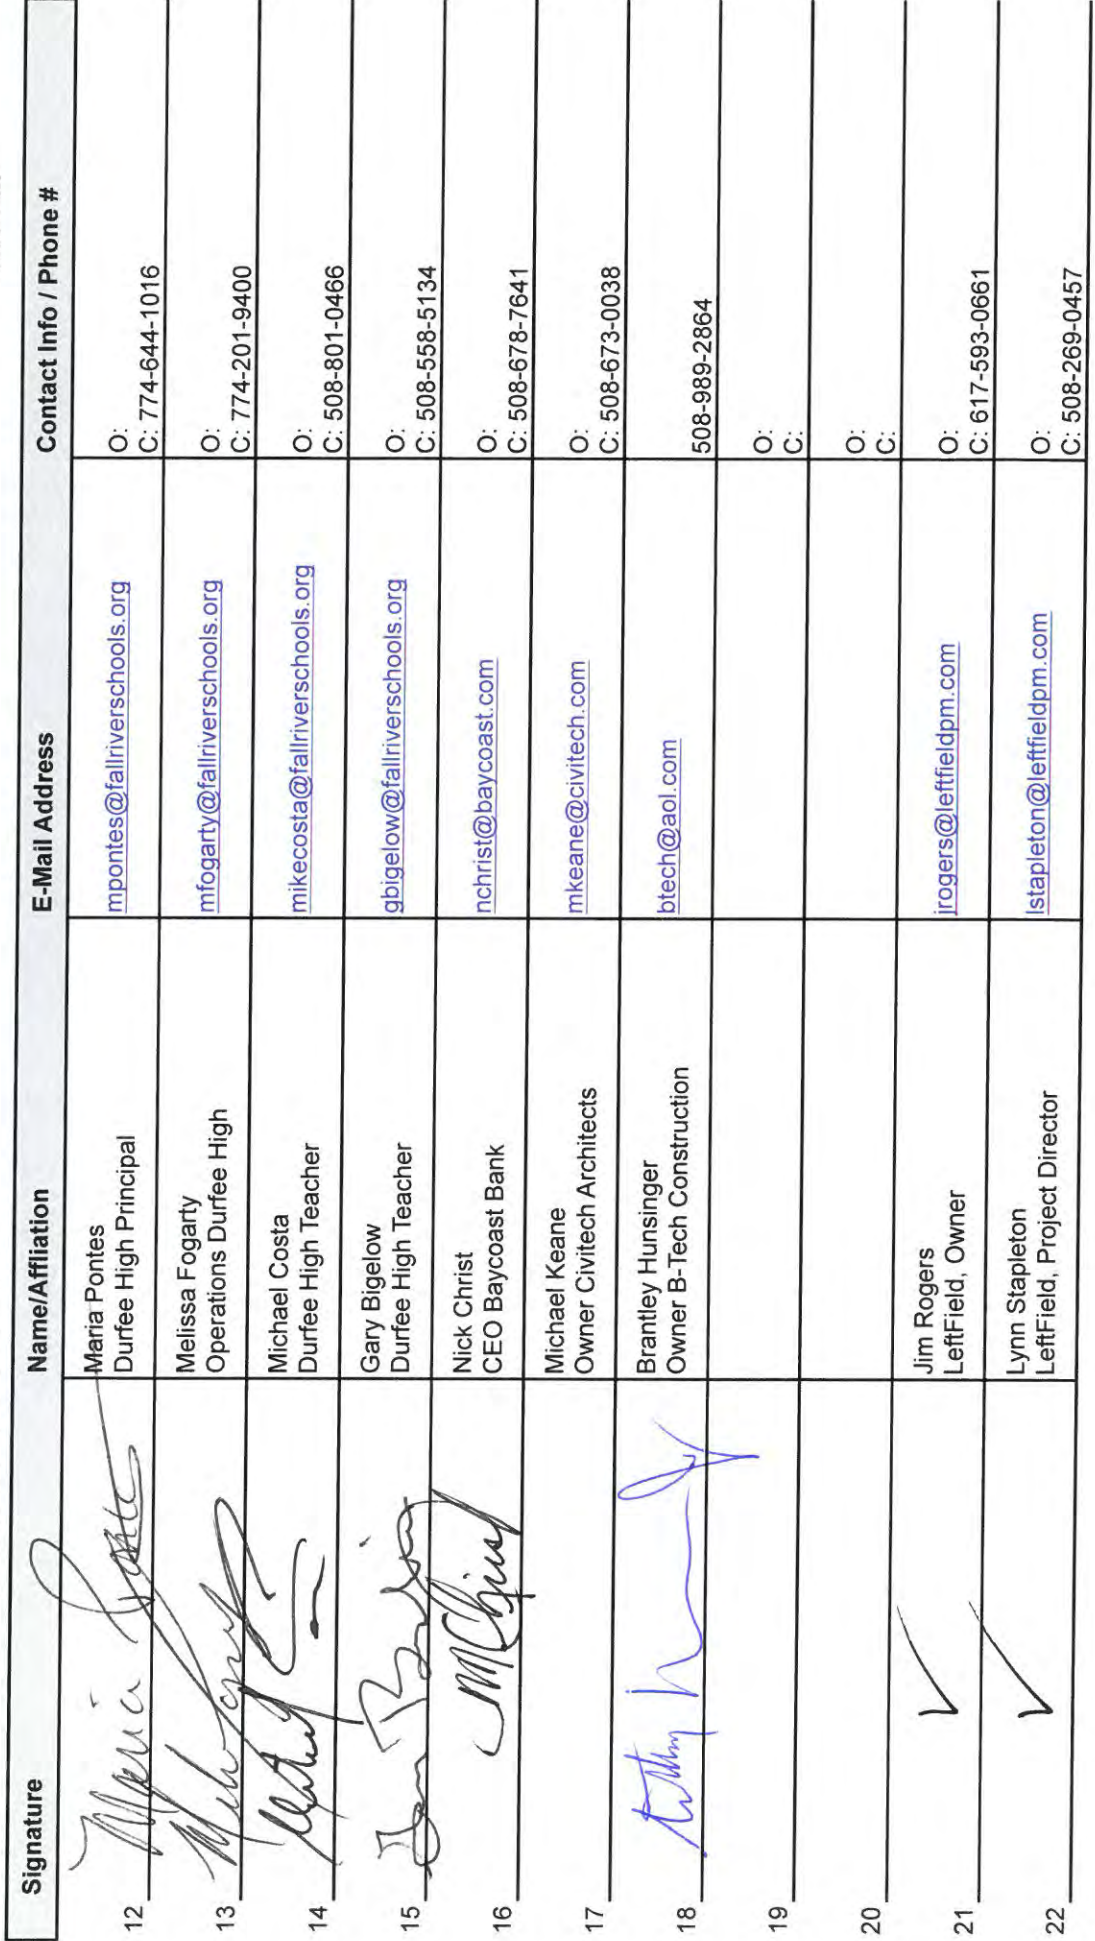 Signature Name/Affliation E-Mail Address Contact Info / Phone #
12 Maria Pontes
Maria Pontes
Durfee High Principal
mpontes@fallriverschools.org
O:
C: 774-644-1016
13
Melissa Fogarty
Operations Durfee High
mfogarty@fallriverschools.org
O:
C: 774-201-9400
14
Michael Costa
Durfee High Teacher
mikecosta@fallriverschools.org
O:
C: 508-801-0466
15
Gary Bigelow
Durfee High Teacher
gbigelow@fallriverschools.org
O:
C: 508-558-5134
16
Nick Christ
CEO Baycoast Bank
nchrist@baycoast.com
O:
C: 508-678-7641
17
Michael Keane
Owner Civitech Architects
mkeane@civitech.com
O:
C: 508-673-0038
18
Brantley Hunsinger
Owner B-Tech Construction
btech@aol.com
508-989-2864
19
O:
C:
20
O:
C:
21
Jim Rogers
LeftField, Owner
jrogers@leftfieldpm.com
O:
C: 617-593-0661
22
Lynn Stapleton
LeftField, Project Director
lstapleton@leftfieldpm.com
O:
C: 508-269-0457